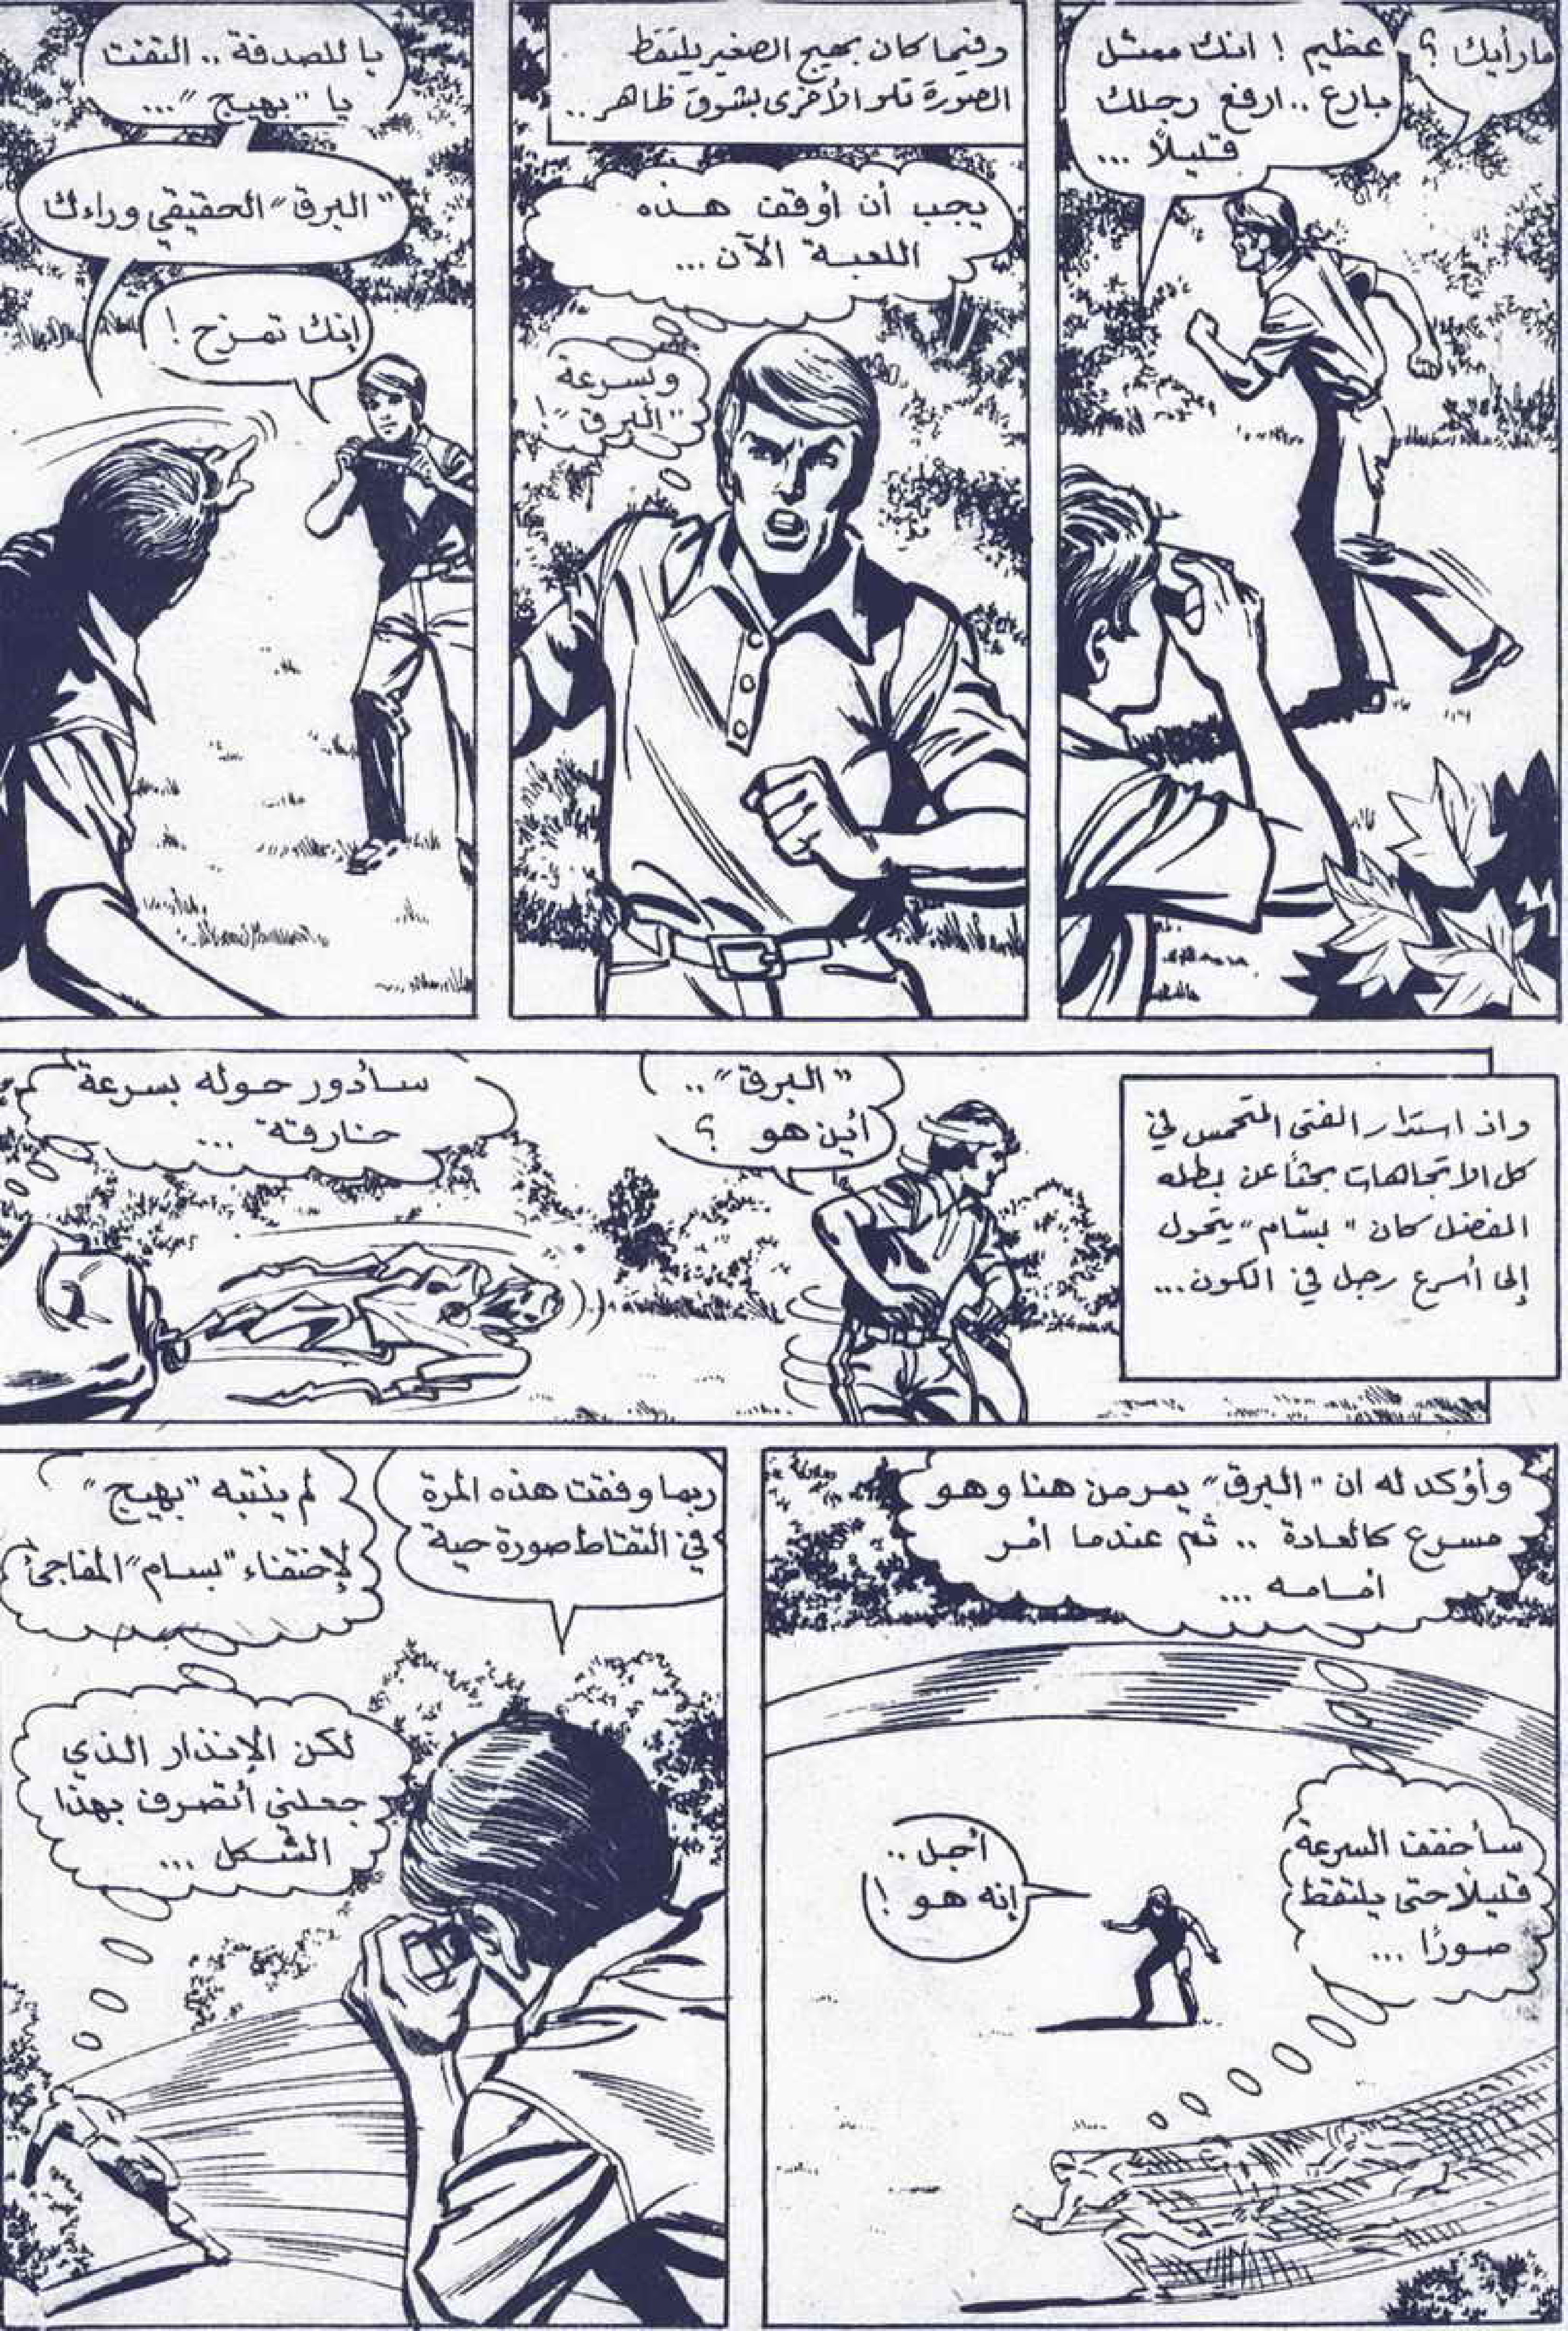 مارأيك ؟
عظيم ! انك ممثل
بارع .. ارفع رجلك
قليلاً ...
وفيما كان بهيج الصغير يلتقط
الصورة تلو الأخرى بشوق ظاهر ..
يجب أن أوقف هذه
اللعبة الآن ...
وبسرعة
"البرق" !
يا للصدفة .. التفت
يا "بهيج" ...
"البرق" الحقيقي وراءك
إنك تمزح !
واذ استدار الفتى المتحمس في
كل الاتجاهات بحثاً عن بطله
المفضل كان "بسّام" يتحول
إلى أسرع رجل في الكون ...
"البرق" ..
أين هو ؟
سأدور حوله بسرعة
خارقة ...
وأؤكد له ان "البرق" يمر من هنا وهو
مسرع كالعادة .. ثم عندما أمر
أمامه ...
سأخفف السرعة
قليلاً حتى يلتقط
صورًا ...
أجل ..
إنه هو !
ربما وفقت هذه المرة
في التقاط صورة حية
لم ينتبه "بهيج"
لإختفاء "بسام" المفاجئ
لكن الإنذار الذي
جعلني أتصرف بهذا
الشكل ...